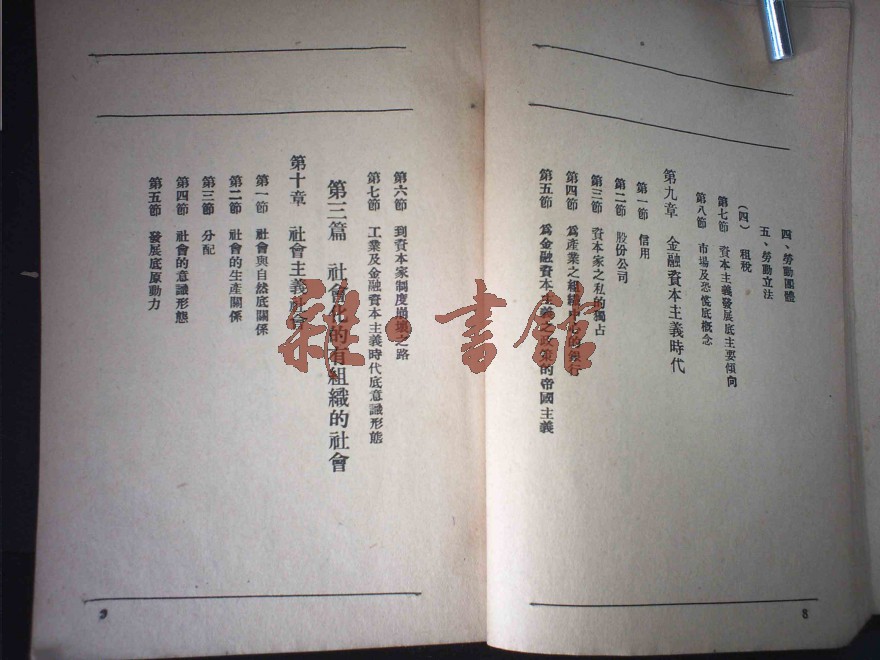 四、勞動團體
五、勞動立法
(四) 租稅
第七節 資本主義發展底主要傾向
第八節 市場及恐慌底概念
第九章 金融資本主義時代
第一節 信用
第二節 股份公司
第三節 資本家之私的獨占
第四節 爲產業之組織中心的銀行
第五節 爲金融資本主義之政策的帝國主義
8
第六節 到資本家制度崩壞之路
第七節 工業及金融資本主義時代底意識形態
第三篇 社會化的有組織的社會
第十章 社會主義社會
第一節 社會與自然底關係
第二節 社會的生產關係
第三節 分配
第四節 社會的意識形態
第五節 發展底原動力
9
雜·書館